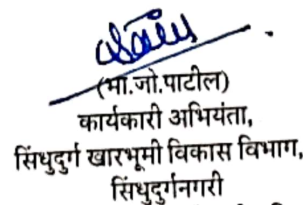 (भा.जो.पाटील)
कार्यकारी अभियंता,
सिंधुदुर्ग खारभूमी विकास विभाग,
सिंधुदुर्गनगरी